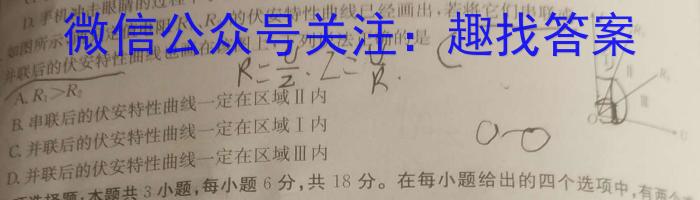 D.手机冲击眼睛的过程
微信公众号关注：趣找答案
如图所示
R₂的伏安特性曲线已经画出，若将它们串联或
并联后的伏安特性曲线也画在
的是
R=U/I. I=U/R. C
A.R₁>R₂
B.串联后的伏安特性曲线一定在区域Ⅱ内
C.并联后的伏安特性曲线一定在区域Ⅰ内
D.并联后的伏安特性曲线一定在区域Ⅲ内
Ⅱ
Ⅲ
O
U
选择题：本题共3小题，每小题6分，共18分。在每小题给出的四个选项中，有两个